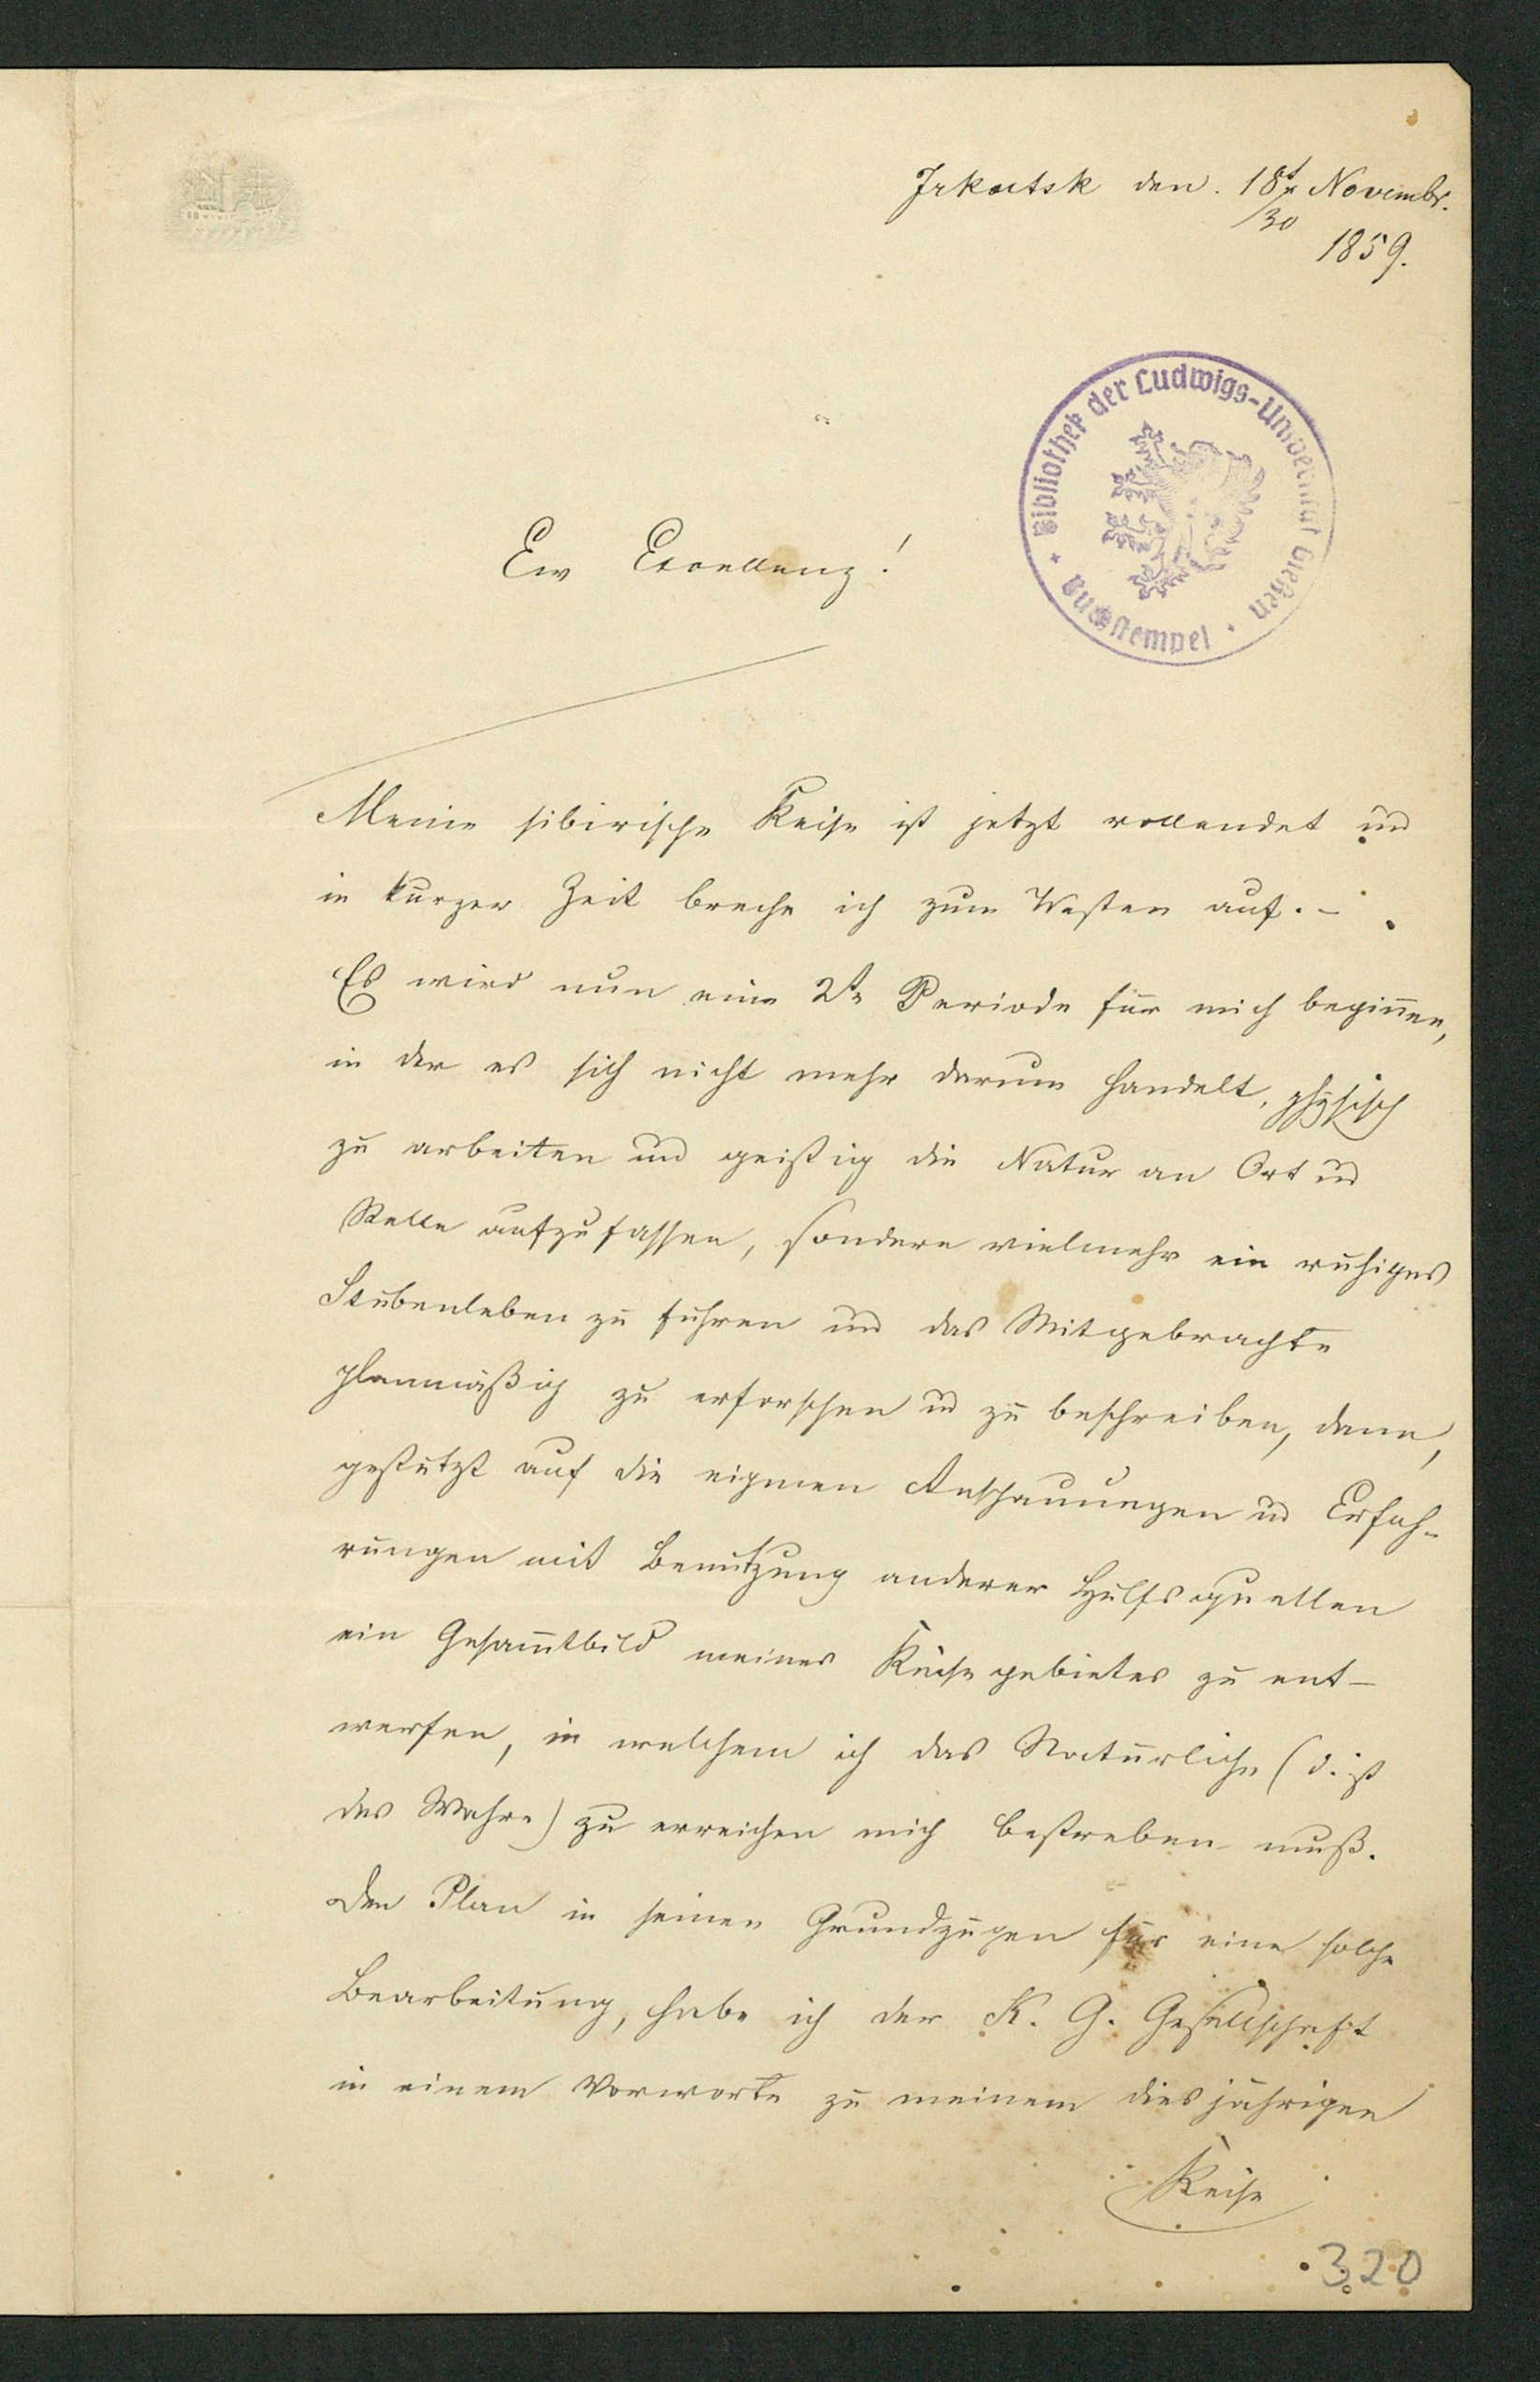 Irkutsk den. 18t Novembr.
/30
1859.
Bibliothek der Ludwigs-Universität Gießen
Buchstempel
Ew Excellenz!
Meine sibirische Reise ist jetzt vollendet und
in kurzer Zeit breche ich zum Westen auf. -
Es wird nun eine 2te Periode für mich begin̄en,
in der es sich nicht mehr darum handelt, physisch
zu arbeiten und geistig die Natur an Ort ud
Stelle aufzufassen, sondern vielmehr ein ruhiges
Stubenleben zu führen und das Mitgebrachte
planmäßig zu erforschen ud zu beschreiben, dann,
gestützt auf die eignen Anschauungen ud Erfah-
rungen mit Benutzung anderer Hülfsquellen
ein Gesam̄tbild meines Reisegebietes zu ent-
werfen, in welchem ich das Natürliche (d. ist
das Wahre) zu erreichen mich bestreben muß.
Den Plan in seinen Grundzügen für eine solche
Bearbeitung, habe ich der K. G. Gesellschaft
in einem Vorworte zu meinem diesjährigen
Reise
320